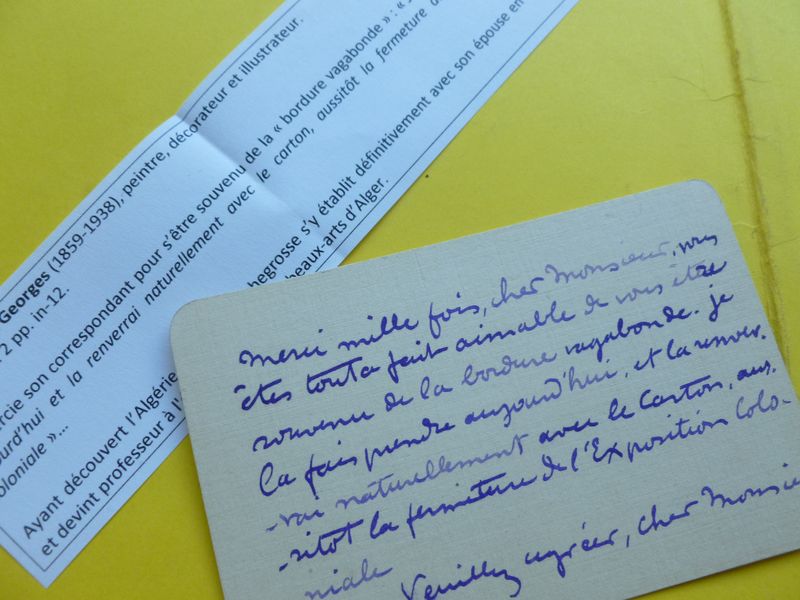 Georges (1859-1938), peintre, décorateur et illustrateur.
2 pp. in-12.
rcie son correspondant pour s'être souvenu de la « bordure vagabonde » : «
ourd'hui et la renverrai naturellement avec le carton, aussitôt la fermeture
oloniale »...
Ayant découvert l'Algérie hegrosse s'y établit définitivement avec son épouse en
et devint professeur à l' beaux-arts d'Alger.
Merci mille fois, cher Monsieur, vous
êtes tout à fait aimable de vous être
souvenu de la bordure vagabonde. je
la fais prendre aujourd'hui, et la renver-
-rai naturellement avec le Carton, aus-
-sitot la fermeture de l'Exposition Colo-
niale
Veuillez agréer, cher Monsie